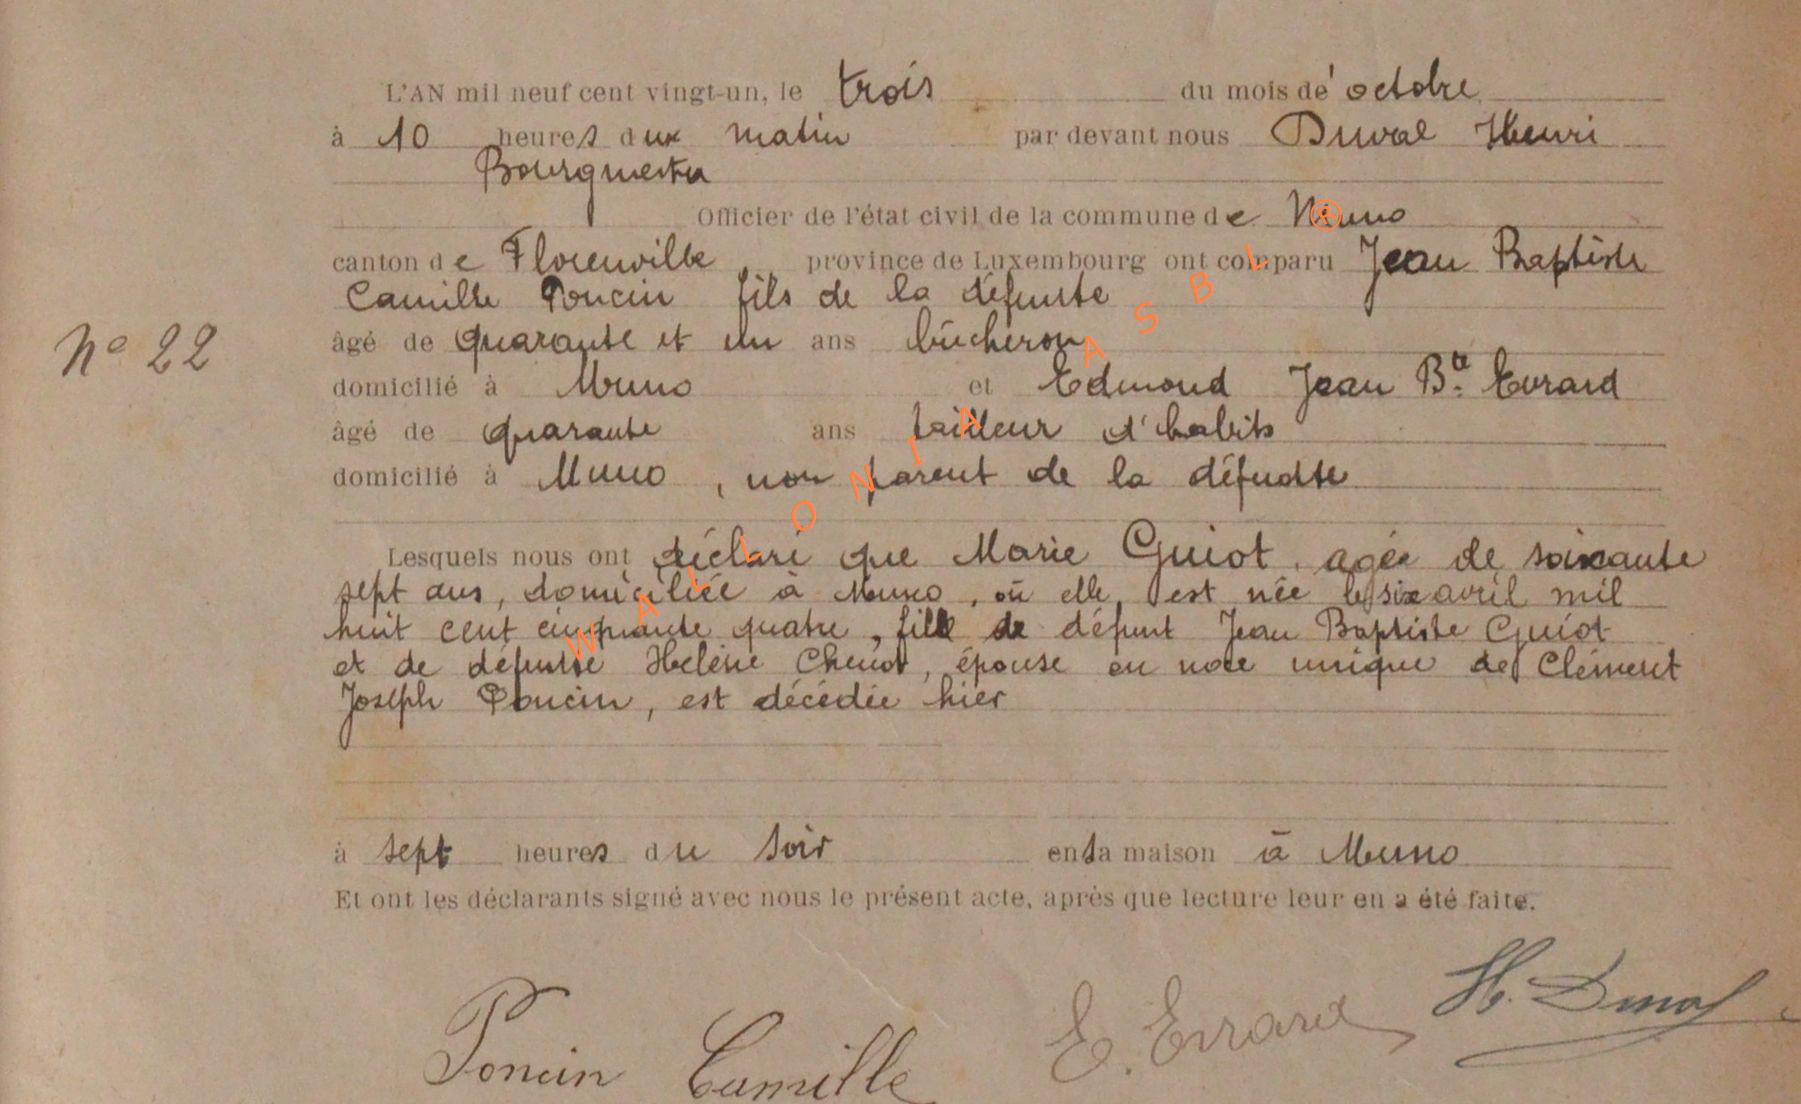 L'AN mil neuf cent vingt-un, le trois du mois de octobre
à 10 heures du matin par devant nous Duval Henri
Bourgmestre
Officier de l'état civil de la commune de Muno
canton de Florenville, province de Luxembourg ont comparu Jean Baptiste
Camille Poncin fils de la défunte
N° 22
âgé de quarante et un ans bûcheron
domicilié à Muno et Edmond Jean Bte Evrard
âgé de quarante ans tailleur d'habits
domicilié à Muno, non parent de la défunte
Lesquels nous ont déclaré que Marie Guiot, agée de soixante
sept ans, domiciliée à Muno, où elle est née le six avril mil
huit cent cinquante quatre, fille de défunt Jean Baptiste Guiot
et de défunte Hélène Chenot, épouse en noce unique de Clément
Joseph Poncin, est décédée hier
à sept heures du soir en sa maison à Muno
Et ont les déclarants signé avec nous le présent acte, après que lecture leur en a été faite.
Poncin Camille E. Evrard H. Duval
WALLONIA ASBL ®